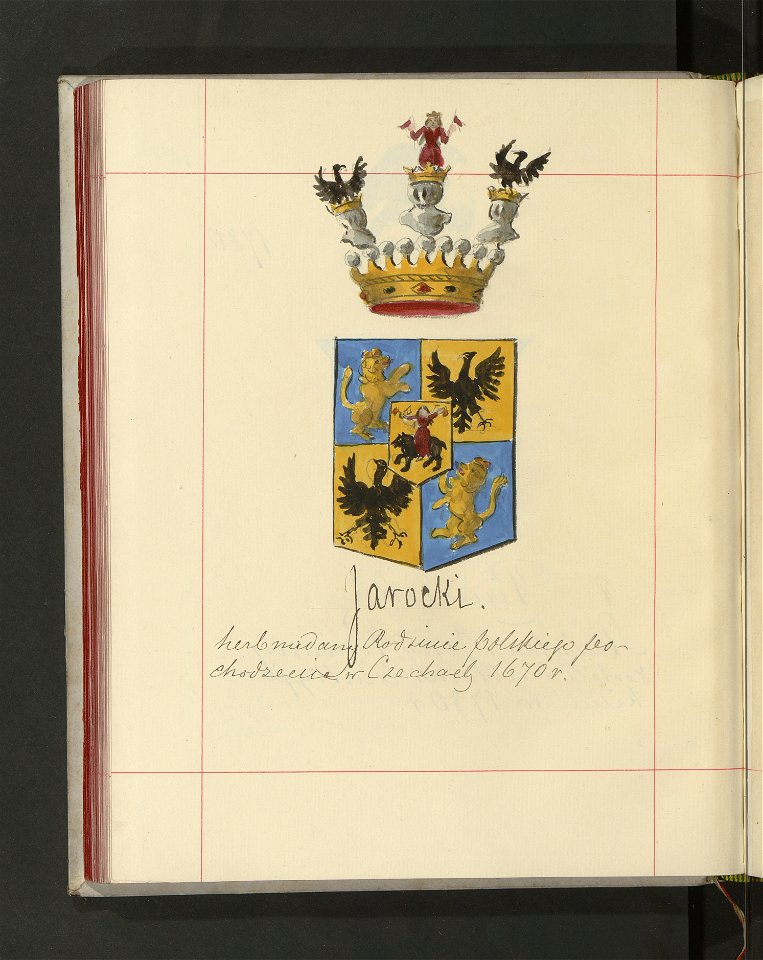 Jarocki.
herb nadany Rodzinie polskiego po-
chodzenia w Czechach 1670 r.